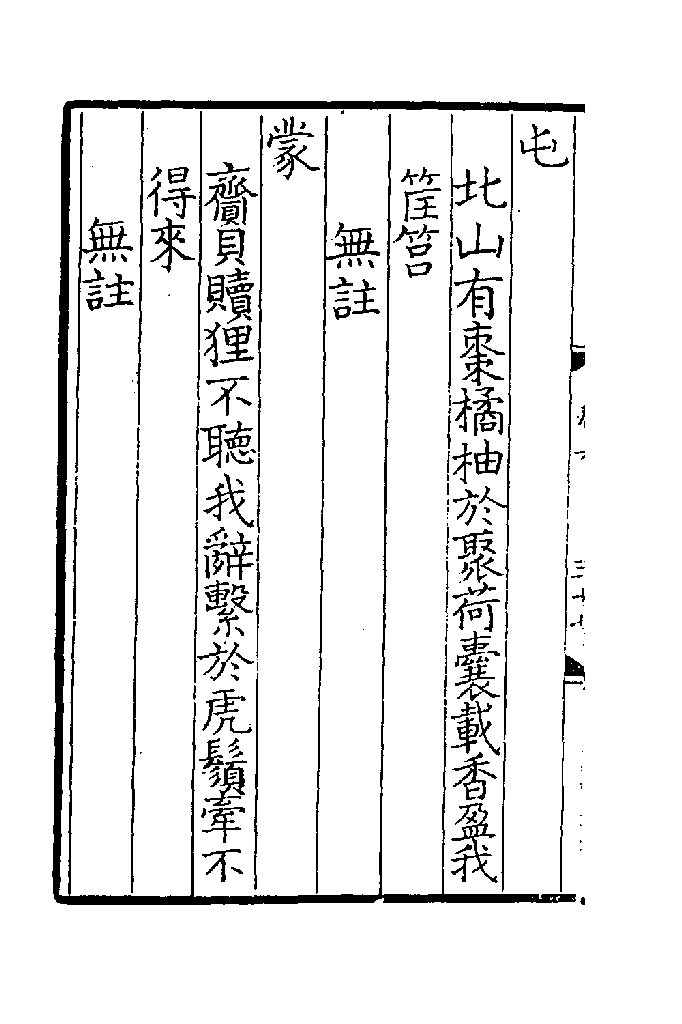 屯
北山有棗橘柚於聚荷囊載香盈我
筐筥
無註
蒙
齎貝贖狸不聽我辭繫於虎鬚牽不
得來
無註